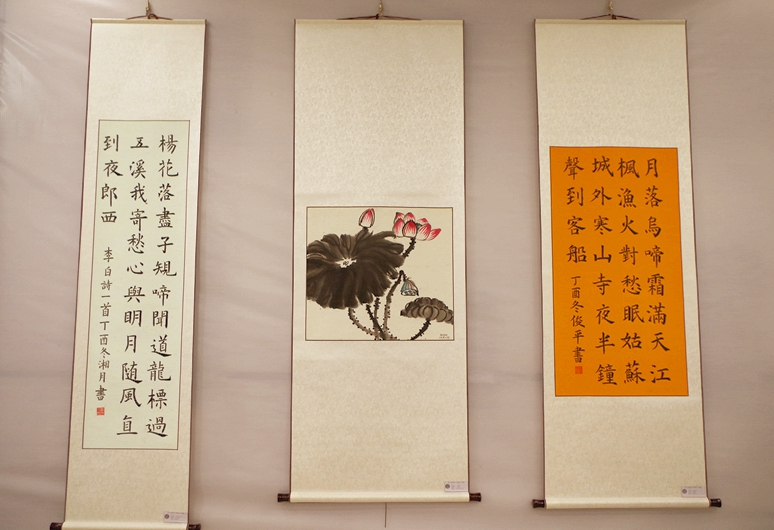 楊花落盡子規啼聞道龍標過
五溪我寄愁心與明月随風直
到夜郎西
李白詩一首丁酉冬湘月書
月落烏啼霜滿天江
楓漁火對愁眠姑蘇
城外寒山寺夜半鐘
聲到客船
丁酉冬俊平書